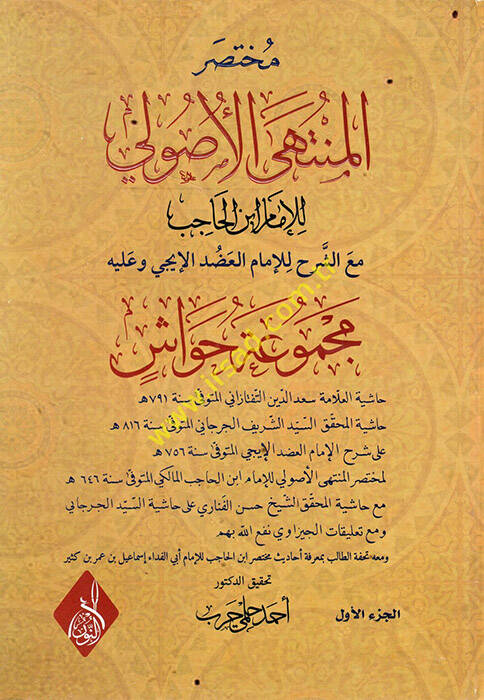 مُختصَر
المُنتَهَى الأُصُولي
لِلإمَام ابن الحَاجِب
مَعَ الشَّرح لِلإمام العَضُد الإيجي وعَليه
مَجْمُوعَة حَوَاشٍ
حاشية العلّامة سعد الدين التفتازاني المتوفى سنة ٧٩١ هـ
حاشية المحقق السيّد الشريف الجرجاني المتوفى سنة ٨١٦ هـ
على شرح الإمام العضد الإيجي المتوفى سنة ٧٥٦ هـ
لمختصر المنتهى الأصولي للإمام ابن الحاجب المالكي المتوفى سنة ٦٤٦ هـ
مع حاشية المحقق الشيخ حسن الفناري على حاشية السيّد الجرجاني
ومع تعليقات الجيزاوي نفع الله بهم
ومعه تحفة الطالب بمعرفة أحاديث مختصر ابن الحاجب للإمام أبي الفداء إسماعيل بن عمر بن كثير
تحقيق الدكتور
أحمد حلمي حرب
الجزء الأول
النور
www.irsad.com.tr